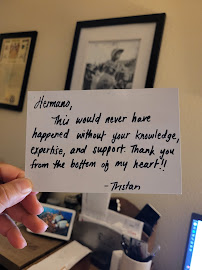 Hermano,
This would never have
happened without your knowledge,
expertise, and support. Thank you
from the bottom of my heart!!
- Tristan